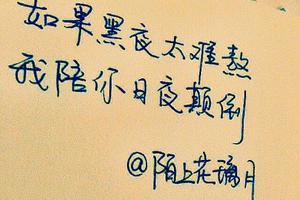 如果黑夜太难熬
我陪你日夜颠倒
@陌上花璃月